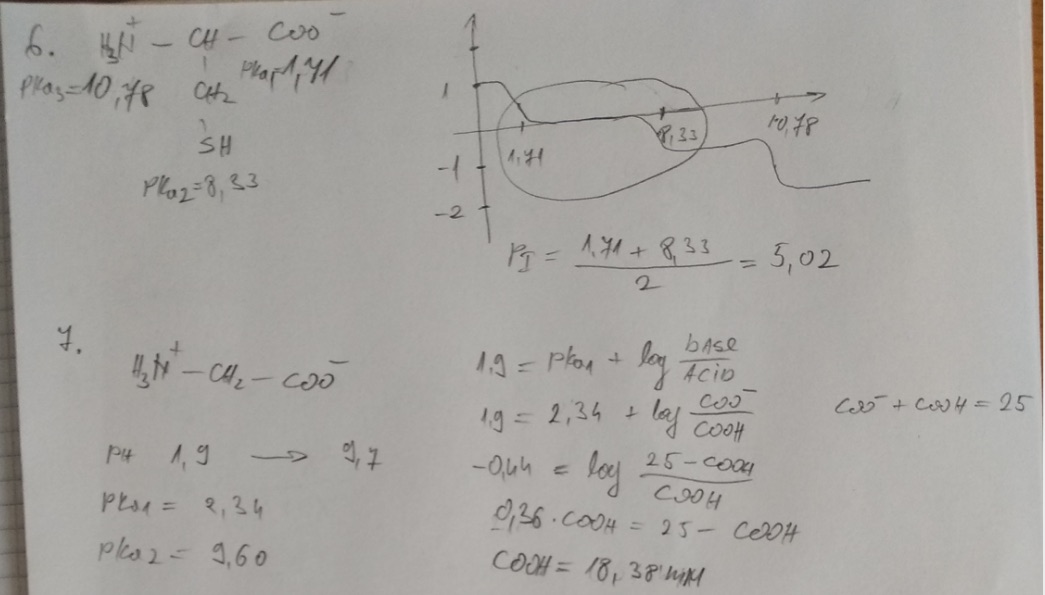 6. H₃N⁺ – CH – COO⁻
pKa₃=10,78 CH₂ pKa₁=1,71
SH
pKa₂=8,33
1
-1
-2
1,71
8,33
10,78
PI = (1,71 + 8,33) / 2 = 5,02
7.
H₃N⁺ – CH₂ – COO⁻
PH 1,9 → 9,7
pKa1 = 2,34
pKa2 = 9,60
1,9 = pKa1 + log BASE / ACID
1,9 = 2,34 + log COO⁻ / COOH
COO⁻ + COOH = 25
-0,44 = log (25 - COOH) / COOH
0,36 · COOH = 25 - COOH
COOH = 18,38 mM